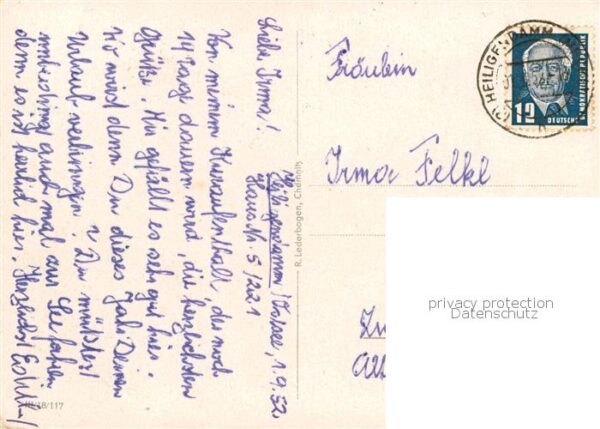 Liebe Irma!
(2) Heiligendamm / Ostsee, 1.9.52
Haus Nr. 5/221
Von meinem Kuraufenthalt, der noch
14 Tage dauern wird, die herzlichsten
Grüße. Mir gefällt es sehr gut hier.
Wo wirst denn Du dieses Jahr Deinen
Urlaub verbringen? Du müßtest
unbedingt auch mal zur See fahren
denn es ist herrlich hier. Herzlichst Edith
III/18/117
R. Lederbogen, Chemnitz
HEILIGENDAMM
12
DEUTSCHE
DEMOKRATISCHE REPUBLIK
Fräulein
Irma Felkl
privacy protection
Datenschutz